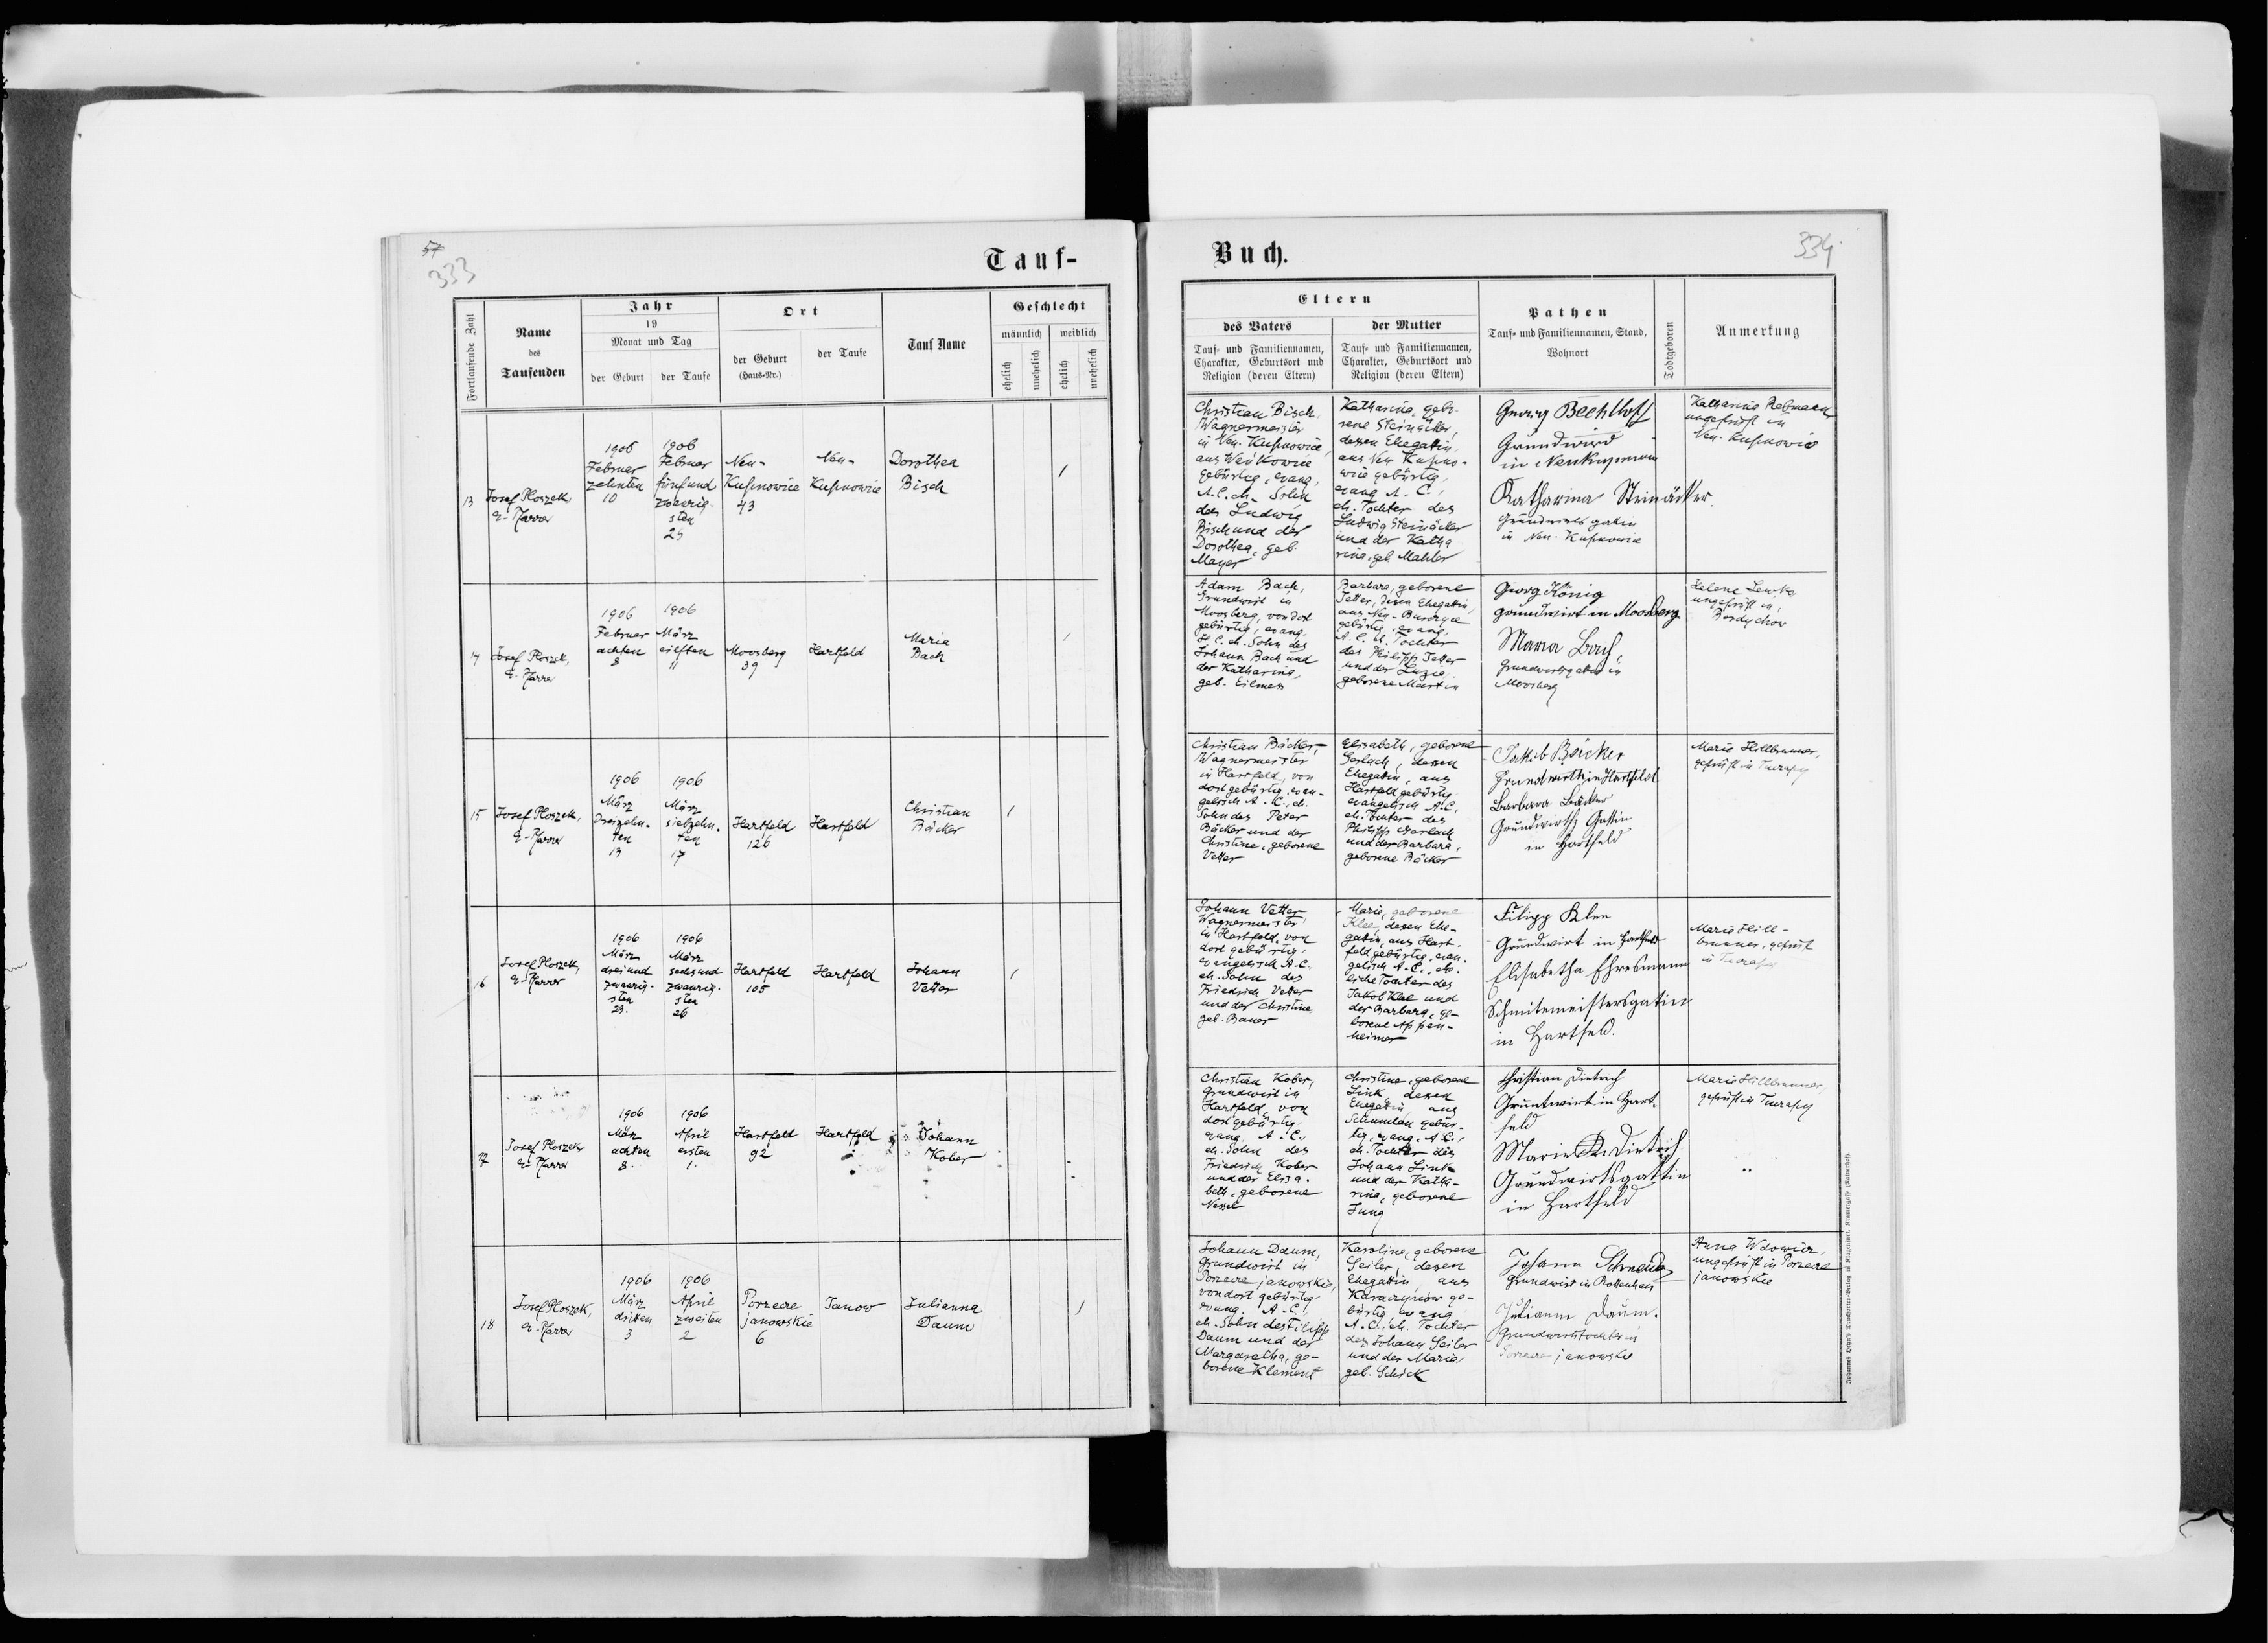 57
333
Tauf-
Fortlaufende Zahl
Name
des
Taufenden
Jahr
19
Monat und Tag
der Geburt
der Taufe
Ort
der Geburt
(Haus-Nr.)
der Taufe
Tauf Name
Geschlecht
männlich
weiblich
ehelich
unehelich
ehelich
unehelich
13
Josef Ploszek,
ev. Pfarrer
1906
Februar
zehnten
10
1906
Februar
fünfund
zwanzig-
sten
25
Neu-
Kupnowice
43
Neu-
Kupnowice
Dorothea
Bisch
1
14
Josef Ploszek,
ev. Pfarrer
1906
Februar
achten
8
1906
März
eilften
11
Moosberg
39
Hartfeld
Maria
Bach
1
15
Josef Ploszek,
ev. Pfarrer
1906
März
dreizehn-
ten
13
1906
März
siebzehn-
ten
17
Hartfeld
126
Hartfeld
Christian
Bäcker
1
16
Josef Ploszek,
ev. Pfarrer
1906
März
dreiund
zwanzig-
sten
23.
1906
März
sechsund
zwanzig-
sten
26
Hartfeld
105
Hartfeld
Johann
Vetter
1
17
Josef Ploszek,
ev. Pfarrer
1906
März
achten
8.
1906
April
ersten
1.
Hartfeld
92
Hartfeld
Johann
Kober
18
Josef Ploszek,
ev. Pfarrer
1906
März
dritten
3
1906
April
zweiten
2
Porzecze
janowskie
6
Janow
Julianna
Daum
1
Buch.
334
Eltern
des Vaters
Tauf- und Familiennamen,
Charakter, Geburtsort und
Religion (deren Eltern)
der Mutter
Tauf- und Familiennamen,
Charakter, Geburtsort und
Religion (deren Eltern)
Pathen
Tauf- und Familiennamen, Stand,
Wohnort
Todtgeboren
Anmerkung
Christian Bisch,
Wagnermeister
in Neu-Kupnowice,
aus
gebürtig, evang.
A. C. eh. Sohn
des Ludwig
Bisch und der
Dorothea, geb.
Mayer
Katharina, gebo-
rene Steinäcker,
dessen Ehegattin,
aus Neu Kupno-
wice gebürtig,
evang A. C.,
eh. Tochter des
Ludwig Steinäcker
und der Katha
rina, geb. Mahler
Georg Bechtloff
Grundwird
in
Katharina Steinäcker.
Grundwirtsgatin
in Neu-Kupnowice
Katharina Rebmann
ungeprüft in
Neu-Kupnowice
Adam Bach,
Grundwirt in
Moosberg, von dort
gebürtig, evang.
H. C. eh. Sohn des
Johann Bach und
der Katharina,
geb. Eilmess
Barbara, geborene
Jetter, dessen Ehegattin,
aus Neu-Burczyce
gebürtig, evang.
A. C. eh. Tochter
des Philipp Jetter
und der Luzia,
geborene Martin
Georg König
Grundwirt in Moosberg
Maria Bach,
Grundwirtsgatin in
Moosberg
Helene Lewke
ungeprüft in,
Berdychow
Christian Bäcker,
Wagnermeister
in Hartfeld, von
dort gebürtig, evan-
gelisch A. C., eh.
Sohn des Peter
Bäcker und der
Christine, geborene
Vetter
Elisabeth, geborene
Gerlach, dessen
Ehegattin, aus
Hartfeld gebürtig,
evangelisch A. C.,
eh. Tochter des
Philipp Gerlach
und der Barbara,
geborene Bäcker
Jakob Bäcker
Grundwirth in Hartfeld
Barbara Bäcker
Grundwirths Gattin
in Hartfeld
Marie Hillbrunner,
geprüft in
Johann Vetter,
Wagnermeister
in Hartfeld, von
dort gebürtig,
evangelisch A. C.
eh. Sohn des
Friedrich Vetter
und der Christine,
geb. Bauer
Marie, geborene
Klee, dessen Ehe-
gattin, aus Hart-
feld gebürtig, evan-
gelisch A. C., ehe-
liche Tochter des
Jakob Klee und
der Barbara, ge-
borene Appen-
heimer
Filipp Klee
Grundwirt in Hartfeld
Elisabetha Ehresmann
Schmitemeistersgatin
in Hartfeld.
Marie Hill-
brunner, geprüft
in
Christian Kober,
Grundwirt in
Hartfeld, von
dort gebürtig,
evang. A. C.,
eh. Sohn des
Friedrich Kober
und der Elisa-
beth, geborene
Nessel
Christine, geborene
Link, dessen
Ehegattin, aus
Schumlau gebür-
tig, evang. A. C.,
eh. Tochter des
Johann Link
und der Katha-
rina, geborene
Jung
Christian Dietrich
Gruntwirt in Hart-
feld
Marie Dietrich
Grundwirtsgattin
in Hartfeld
Marie Hillbrunner,
geprüft in
Johann Daum,
Grundwirt in
Porzecze janowskie,
von dort gebürtig
evang. A. C.,
eh. Sohn des Filipp
Daum und der
Margaretha, ge-
borene Klement
Karolina, geborene
Seiler, dessen
Ehegattin, aus
Karaczynow ge-
bürtig, evang
A. C. eh. Tochter
des Johann Seiler
und der Maria,
geb. Schick
Johann
Grundwirt in Rottenhan
Julianne Daum.
Grundwirtstochter in
Porzecze janowskie
Anna Wdowicz,
ungeprüft in Porzecze
janowskie